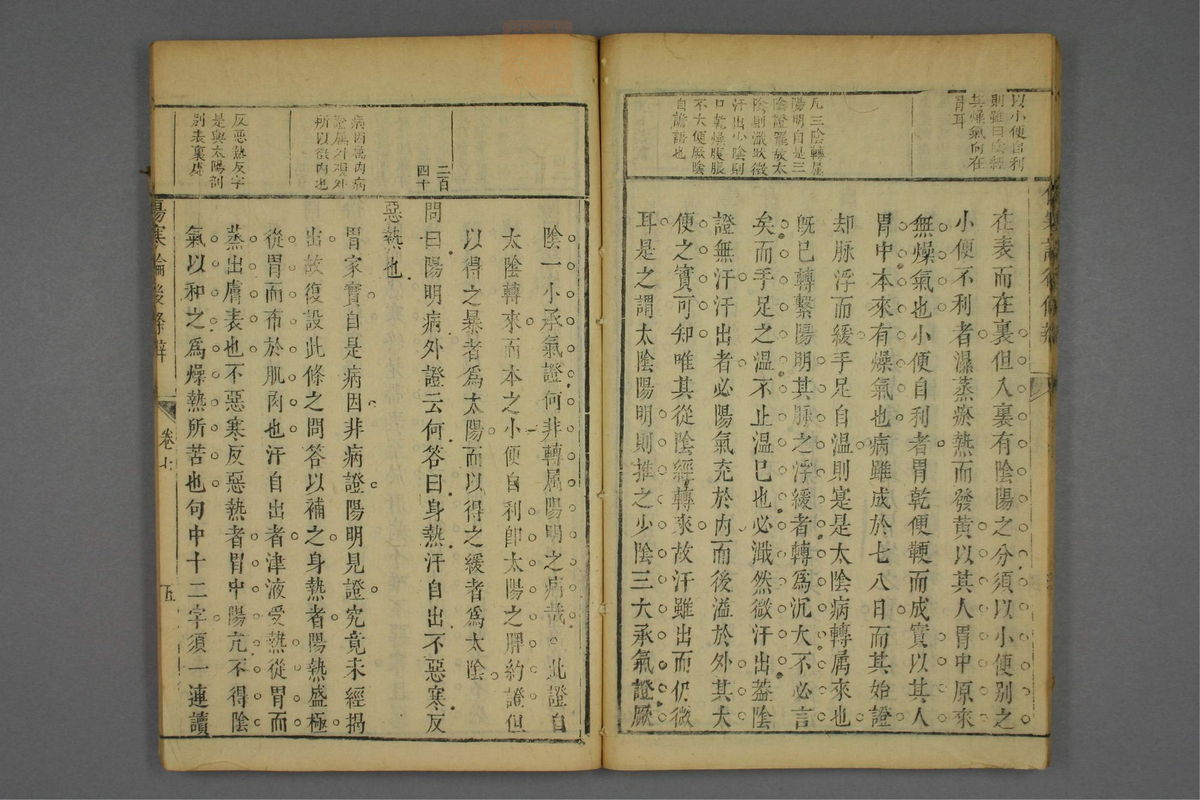 以小便自利
則雖曰陰經
其燥氣何在
胃耳
凡三陰轉属
陽明自是三
陰證罷故太
陰則濈然微
汗出少陰則
口乾燥腹脹
不大便厥陰
自讝語也
在表而在裏但入裏有陰陽之分須以小便別之
小便不利者濕蒸瘀熱而發黄以其人胃中原來
無燥氣也小便自利者胃乾便鞕而成實以其人
胃中本來有燥氣也病雖成於七八日而其始證
却脉浮而緩手足自温則寔是太陰病轉属來也
旣已轉繫陽明其脉之浮緩者轉爲沉大不必言
矣而手足之温不止温已也必濈然微汗出葢陰
證無汗汗出者必陽氣充於内而後溢於外其大
便之實可知唯其從陰經轉來故汗雖出而仍微
耳是之謂太陰陽明則推之少陰三大承氣證厥
陰一小承氣證何非轉属陽明之病哉此證自
太陰轉來而本之小便自利卽太陽之脾約證但
以得之暴者爲太陽而以得之緩者爲太陰
二百
四十
問曰陽明病外證云何答曰身熱汗自出不惡寒反
惡熱也
病因属内病
證属外現外
所以徵内也
胃家實自是病因非病證陽明見證究竟未經揭
出故復設此條之問答以補之身熱者陽熱盛極
從胃而布於肌肉也汗自出者津液受熱從胃而
蒸出膚表也不惡寒反惡熱者胃中陽亢不得陰
氣以和之爲燥熱所苦也句中十二字須一連讀
反惡熱反字
是與太陽剖
別表裏處
傷寒論後條辨
卷七
五